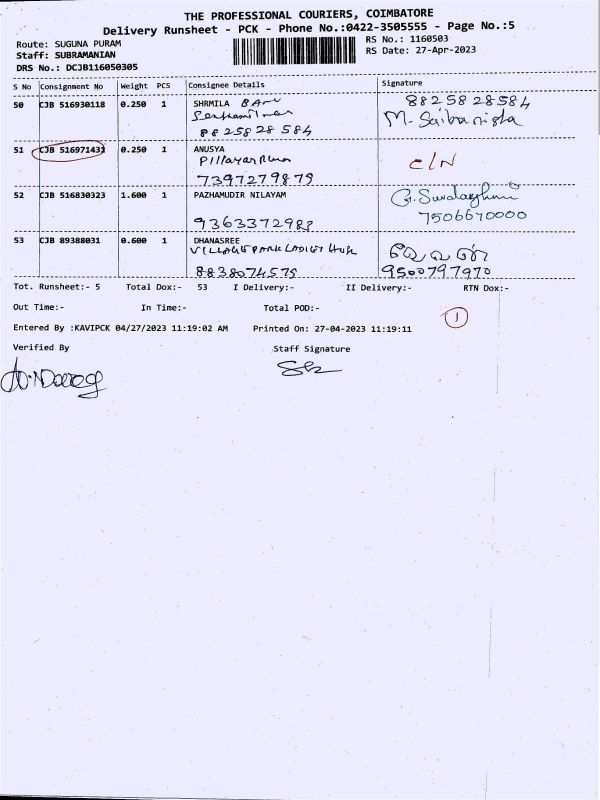 THE PROFESSIONAL COURIERS, COIMBATORE
Delivery Runsheet - PCK - Phone No.:0422-3505555 - Page No.:5
Route: SUGUNA PURAM
Staff: SUBRAMANIAN
DRS No.: DCJB116050305
RS No.: 1160503
RS Date: 27-Apr-2023
S No Consignment No Weight PCS Consignee Details Signature
50 CJB 516930118 0.250 1 SHRMILA BANU 8825828584
M. Saibanisha
8825828584
51 CJB 516971431 0.250 1 ANUSYA
C/N
7397279879
52 CJB 516830323 1.600 1 PAZHAMUDIR NILAYAM
9363372988 7506670000
53 CJB 89388031 0.600 1 DHANASREE
VILLAGE PARK LADIES
8838074575 9500797970
Tot. Runsheet:- 5 Total Dox:- 53 I Delivery:- II Delivery:- RTN Dox:-
Out Time:- In Time:- Total POD:-
1
Entered By :KAVIPCK 04/27/2023 11:19:02 AM Printed On: 27-04-2023 11:19:11
Verified By Staff Signature